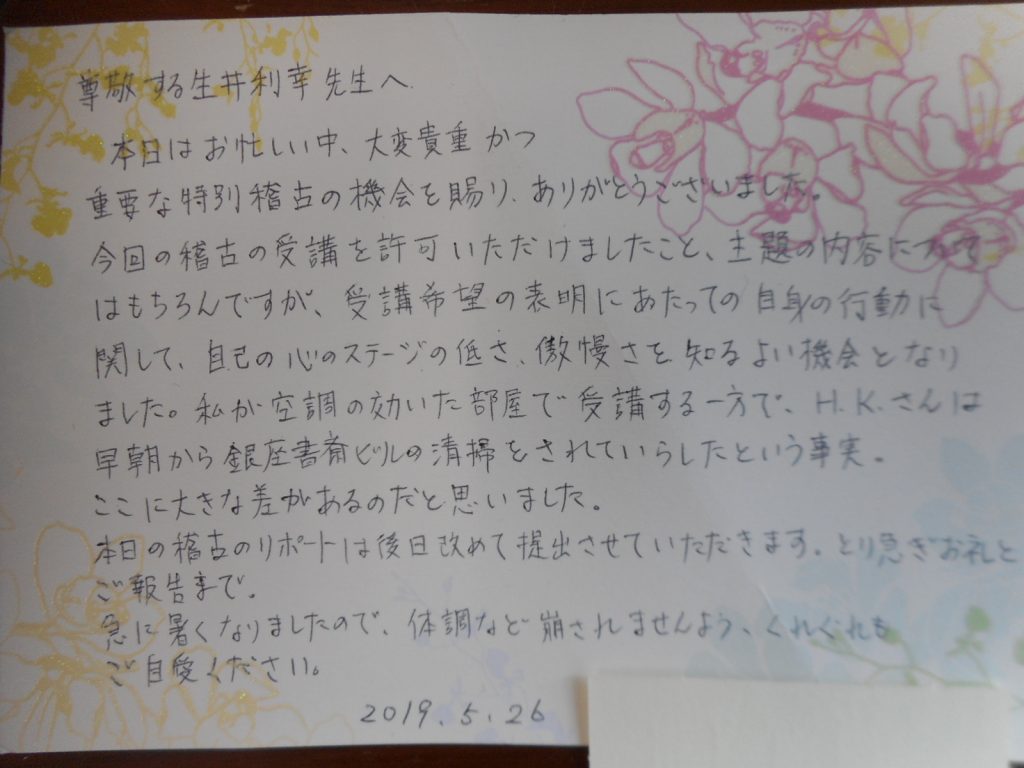 尊敬する生井利幸先生へ
本日はお忙しい中、大変貴重かつ
重要な特別稽古の機会を賜り、ありがとうございました。
今回の稽古の受講を許可いただけましたこと、主題の内容について
はもちろんですが、受講希望の表明にあたっての自身の行動に
関して、自己の心のステージの低さ、傲慢さを知るよい機会となり
ました。私が空調の効いた部屋で受講する一方で、H.K.さんは
早朝から銀座書斎ビルの清掃をされていらしたという事実。
ここに大きな差があるのだと思いました。
本日の稽古のリポートは後日改めて提出させていただきます。とり急ぎお礼と
ご報告まで。
急に暑くなりましたので、体調など崩されませんよう、くれぐれも
ご自愛ください。
2019.5.26